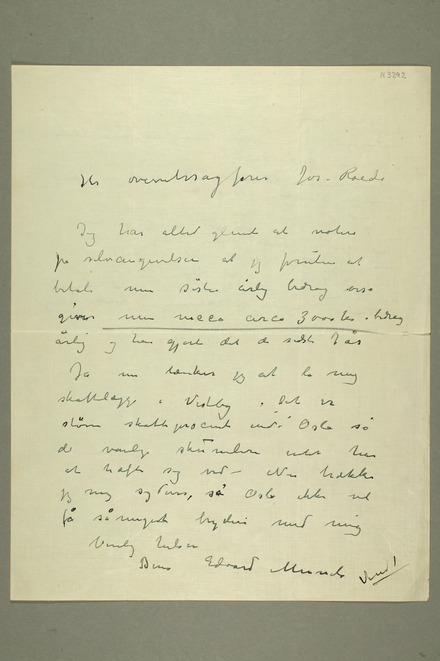 N 3292
Hr overretssagfører Jos. Roede
Jeg har altid glemt at notere
på selvangivelsen at jeg foruten at
betale min søster årlig bidrag også
giver min niece circa 3000 kr. bidrag
årlig og har gjort det de sidste 7 år
Ja nu tænker jeg at la mig
skattlægge i Vestby. Det er
større skatteprocent end i Oslo så
de vanlige skumlere intet har
at hæfte sig ved – Nu trækker
jeg mig sydover, så Oslo ikke vil
få så meget bryderi med mig
Venlig hilsen
Deres Edvard Munch
Vend!